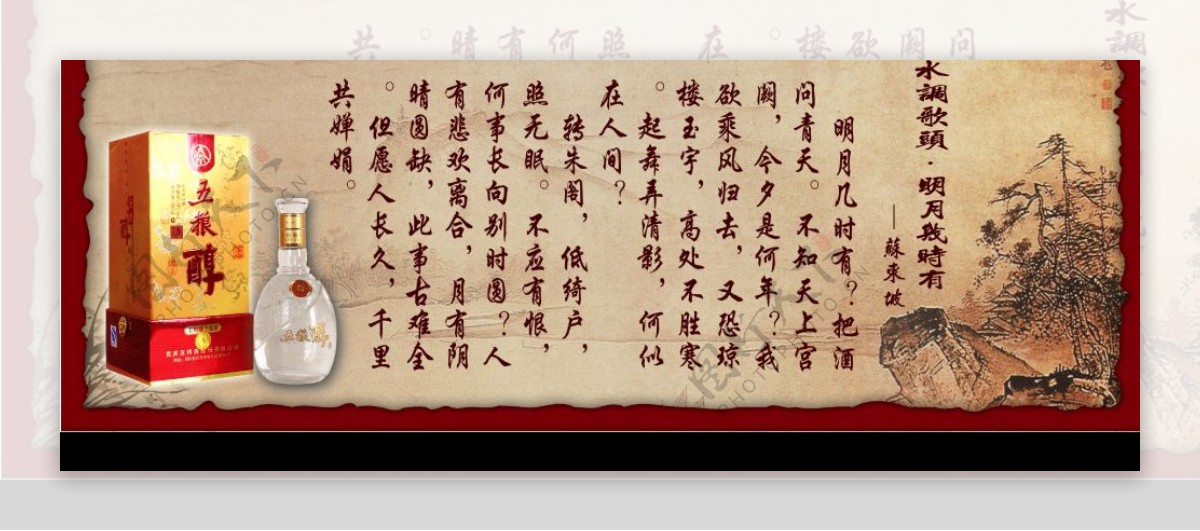 水調歌頭·明月幾時有
——蘇東坡
明月几时有？把酒
问青天。不知天上宫
阙，今夕是何年？我
欲乘风归去，又恐琼
楼玉宇，高处不胜寒
。起舞弄清影，何似
在人间？
转朱阁，低绮户，
照无眠。不应有恨，
何事长向别时圆？人
有悲欢离合，月有阴
晴圆缺，此事古难全
。但愿人长久，千里
共婵娟。
五粮
醇
五粮醇
水調
问
阙
欲
楼
。
在
照
何
有
晴
。
共